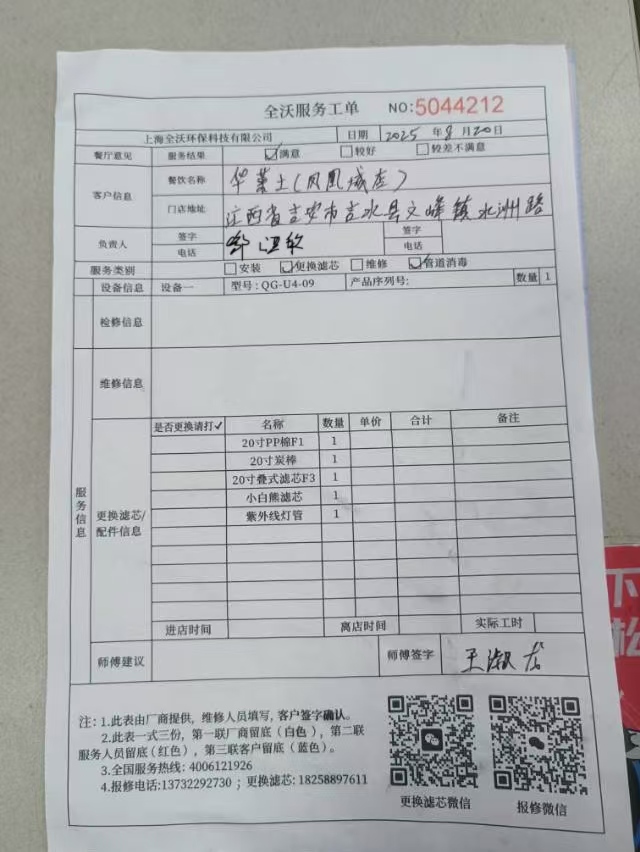 全沃服务工单 NO:5044212
上海全沃环保科技有限公司 日期 2025 年 8 月 20 日
餐厅意见 服务结果 ☑满意 □较好 □较差不满意
客户信息 餐饮名称 华莱士(凤凰城店)
门店地址 江西省吉安市吉水县文峰镇水洲路
负责人 签字 签字
电话 电话
服务类别 □安装 ☑更换滤芯 □维修 ☑管道消毒
设备信息 设备一 型号:QG-U4-09 产品序列号: 数量 1
检修信息
维修信息
服务信息
更换滤芯/配件信息
是否更换请打✓ 名称 数量 单价 合计 备注
20寸PP棉F1 1
20寸炭棒 1
20寸叠式滤芯F3 1
小白熊滤芯 1
紫外线灯管 1
进店时间 离店时间 实际工时
师傅建议 师傅签字 王淑龙
注:1.此表由厂商提供,维修人员填写,客户签字确认。
2.此表一式三份,第一联厂商留底(白色),第二联
服务人员留底(红色),第三联客户留底(蓝色)。
3.全国服务热线: 4006121926
4.报修电话:13732292730 ; 更换滤芯: 18258897611
更换滤芯微信 报修微信
下
松